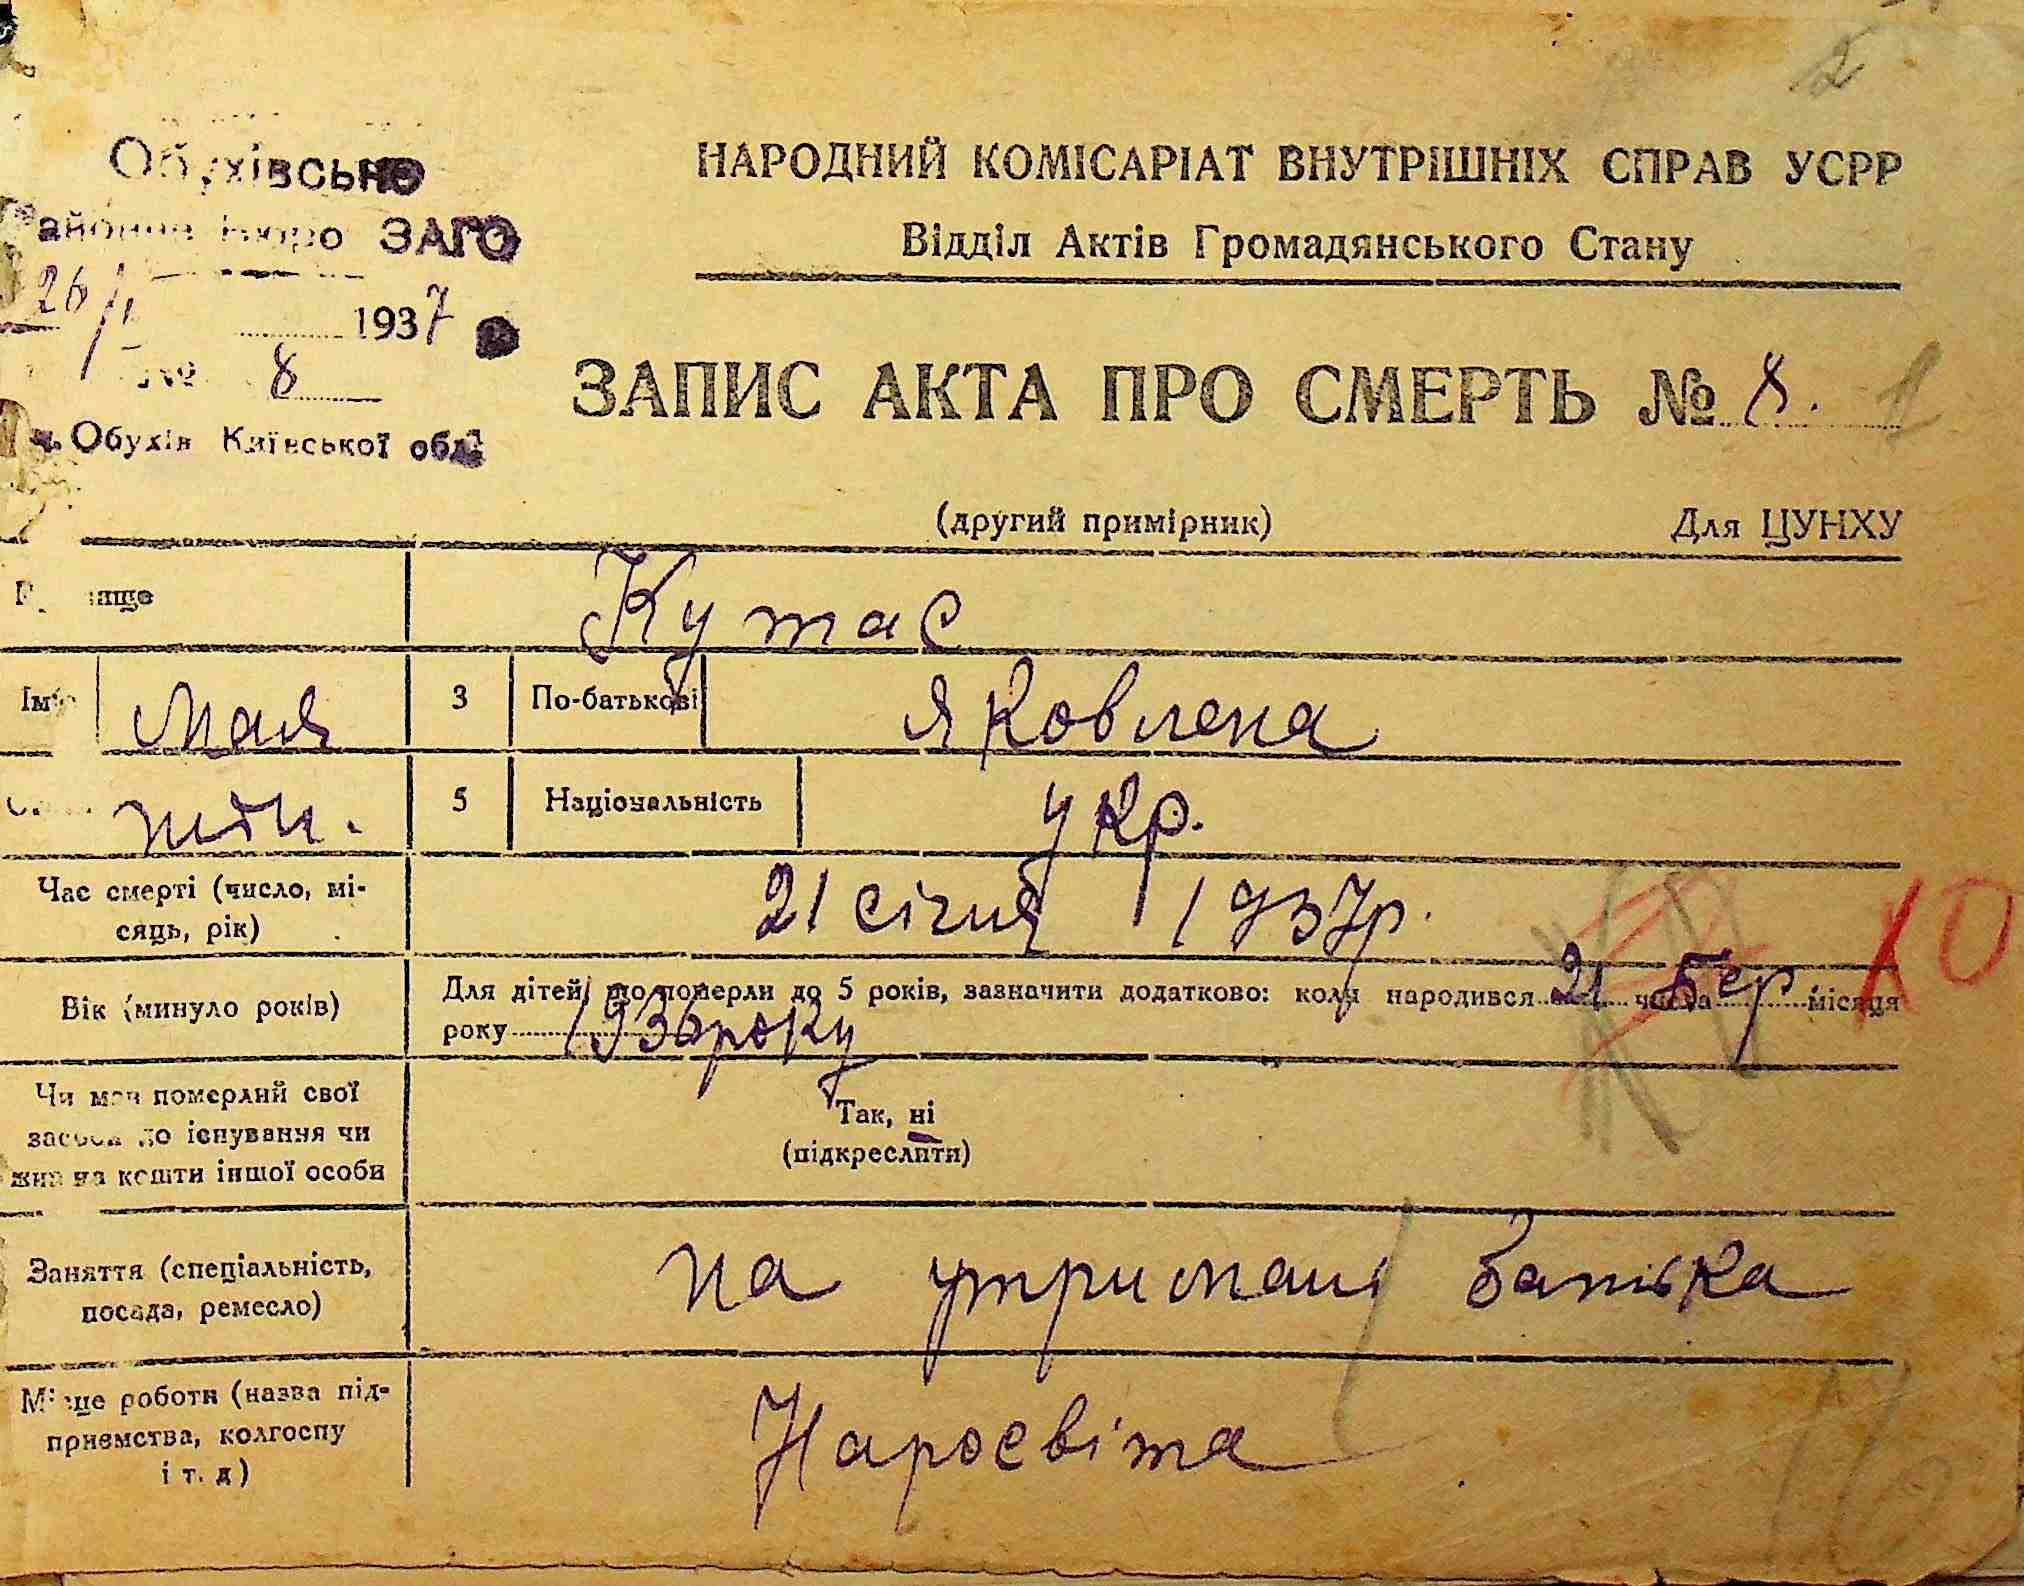 Обухівське
Районне Бюро ЗАГС
26/I 1937
№ 8
м. Обухів Київської обл.
НАРОДНИЙ КОМІСАРІАТ ВНУТРІШНІХ СПРАВ УСРР
Відділ Актів Громадянського Стану
ЗАПИС АКТА ПРО СМЕРТЬ № 8. 1
(другий примірник)
Для ЦУНХУ
Прізвище Кутас
Ім'я Мая 3 По-батькові Яковлена
жін. 5 Національність укр.
Час смерті (число, мі-
сяць, рік)
21 січня 1937р.
10
Вік (минуло років)
Для дітей, що померли до 5 років, зазначити додатково: коли народився 21 числа бер місяця
року 1936року
Чи мав померлий свої
засоби до існування чи
жив на кошти іншої особи
Так, ні
(підкреслити)
Заняття (спеціальність,
посада, ремесло)
на утримані батька
Місце роботи (назва під-
приємства, колгоспу
і т. д)
Наросвіта